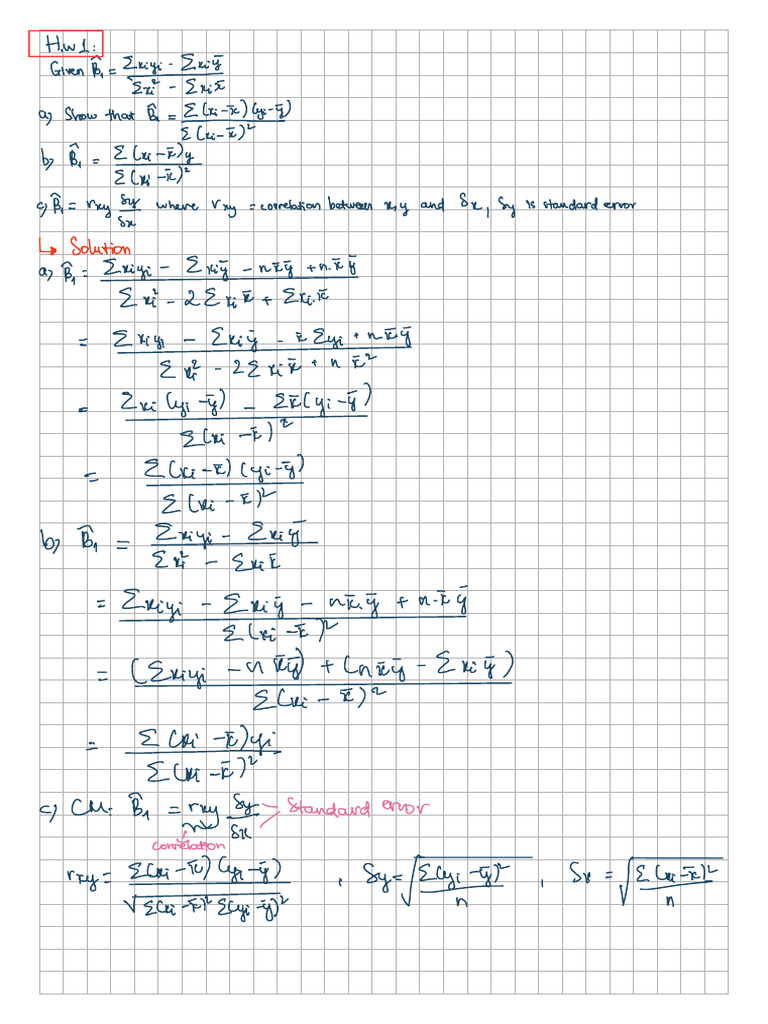 H.w 1:
Given B̂₁ = (Σxiyi - Σxiȳ) / (Σxi² - Σxix̄)
a) Show that B̂₁ = Σ(xi-x̄)(yi-ȳ) / Σ(xi-x̄)²
b) B̂₁ = Σ(xi-x̄)y / Σ(xi-x̄)²
c) B̂₁ = rxy Sy/Sx where rxy = correlation between x,y and Sx, Sy is standard error
↳ Solution
a) B̂₁ = (Σxiyi - Σxiȳ - nx̄ȳ + n.x̄ȳ) / (Σxi² - 2Σxix̄ + Σxi.x̄)
= (Σxiyi - Σxiȳ - x̄Σyi + n.x̄ȳ) / (Σxi² - 2Σxix̄ + nx̄²)
= (Σxi(yi-ȳ) - Σx̄(yi-ȳ)) / Σ(xi-x̄)²
= Σ(xi-x̄)(yi-ȳ) / Σ(xi-x̄)²
b) B̂₁ = (Σxiyi - Σxiȳ) / (Σxi² - Σxix̄)
= (Σxiyi - Σxiȳ - nx̄.ȳ + n.x̄ȳ) / Σ(xi-x̄)²
= ((Σxiyi - nx̄ȳ) + (nx̄ȳ - Σxiȳ)) / Σ(xi-x̄)²
= Σ(xi-x̄)yi / Σ(xi-x̄)²
c) CM: B̂₁ = rxy Sy/Sx Standard error
correlation
rxy = Σ(xi-x̄)(yi-ȳ) / √(Σ(xi-x̄)² Σ(yi-ȳ)²) , Sy = √(Σ(yi-ȳ)² / n) , Sx = √(Σ(xi-x̄)² / n)